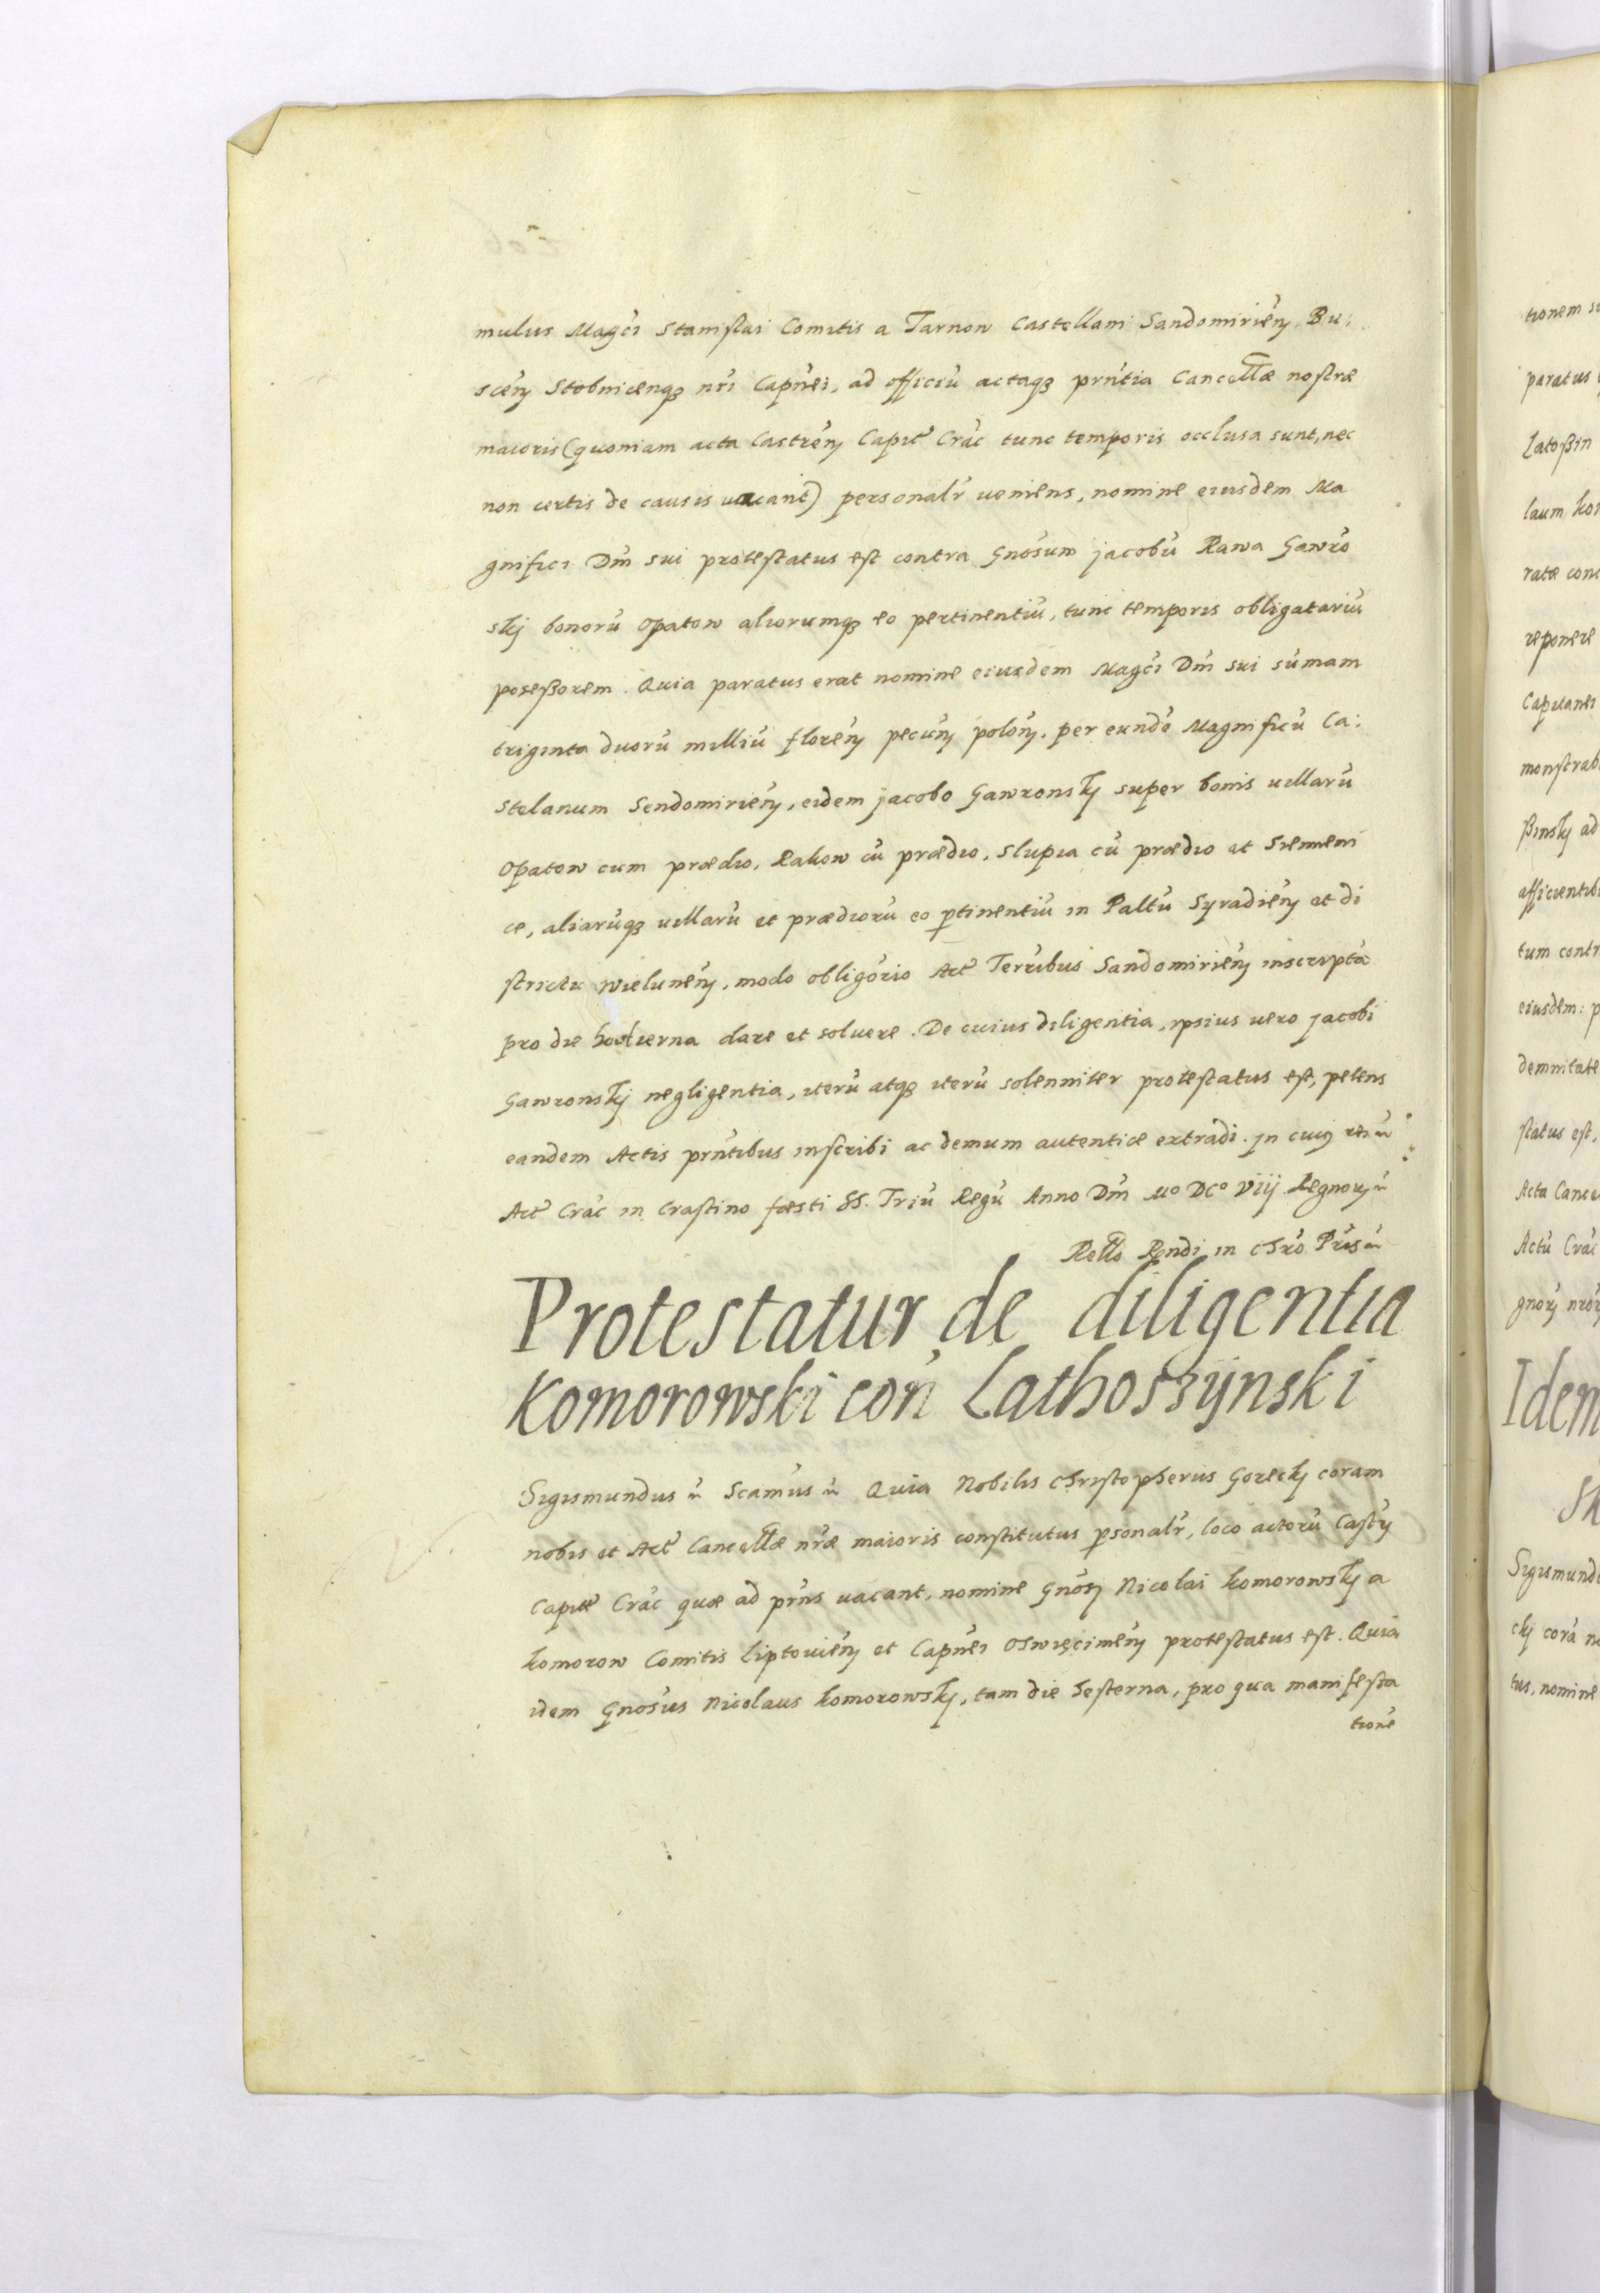 mulus Magci Stanislai Comitis a Tarnow Castellani Sandomirien. Bu:
scen Stobnicenq3 nri Capnei, ad officiu actaq3 prntia Cancellæ nostræ
maioris (quoniam acta Castren Capit Crac tunc temporis occlusa sunt, nec
non certis de causis vacant) personalr veniens, nomine eiusdem Ma
gnifici Dni sui protestatus est contra Gnosum Jacobu Rawa Gawro
skj bonoru Opatow aliorumq3 eo pertinentiu, tunc temporis obligatariu
poseßorem. Quia paratus erat nomine eiusdem Magci Dni sui sumam
triginta duoru milliu floren pecun polon. per eunde Magnificu Ca:
stelanum Sendomirien, eidem Jacobo Gawronskj super bonis villaru
Opatow cum prædio, Rakow cu prædio, Slupia cu prædio et Siemieni
ce, aliaruq3 villaru et prædioru eo ptinentiu in Paltu Syradien et di
strictu Wielunen, modo obligorio Act Terribus Sandomirien inscripta
pro die hodierna dare et solvere. De cuius diligentia, ipsius vero Jacobi
Gawronskj negligentia, iteru atq3 iteru solenniter protestatus est, petens
eandem Actis prntibus inscribi ac demum autenticæ extradi. In cuius rei
Act Crac in Crastino fæsti SS. Triu Regu Anno Dni Mo DCo Viij Regnorj
Rello Rendi in Chro Pris
Protestatur de diligentia
Komorowski con Lathoszÿnski
Sigismundus Scamus Quia Nobilis Christopherus Goreckj coram
nobis et Act Cancellæ nræ maioris constitutus psonalr, loco actoru Castr
Capit Crac quæ ad prns vacant, nomine Gnosi Nicolai Komorowskj a
Komorow Comitis Liptovien et Capnei Oswięcimen protestatus est. Quia
idem Gnosus Nicolaus Komorowskj, tam die hesterna, pro qua manifesta
tione
tionem
paratus
Latoßin
laum
ratæ
reponere
Capitanei
monstrab
ßinskj ad
afficientib
tum contr
eiusdem: p
demnitate
status est,
Acta Cance
Actu Crac
gnorj nror
Idem
Sk
Sigismund
ckj cora n
tus, nomine